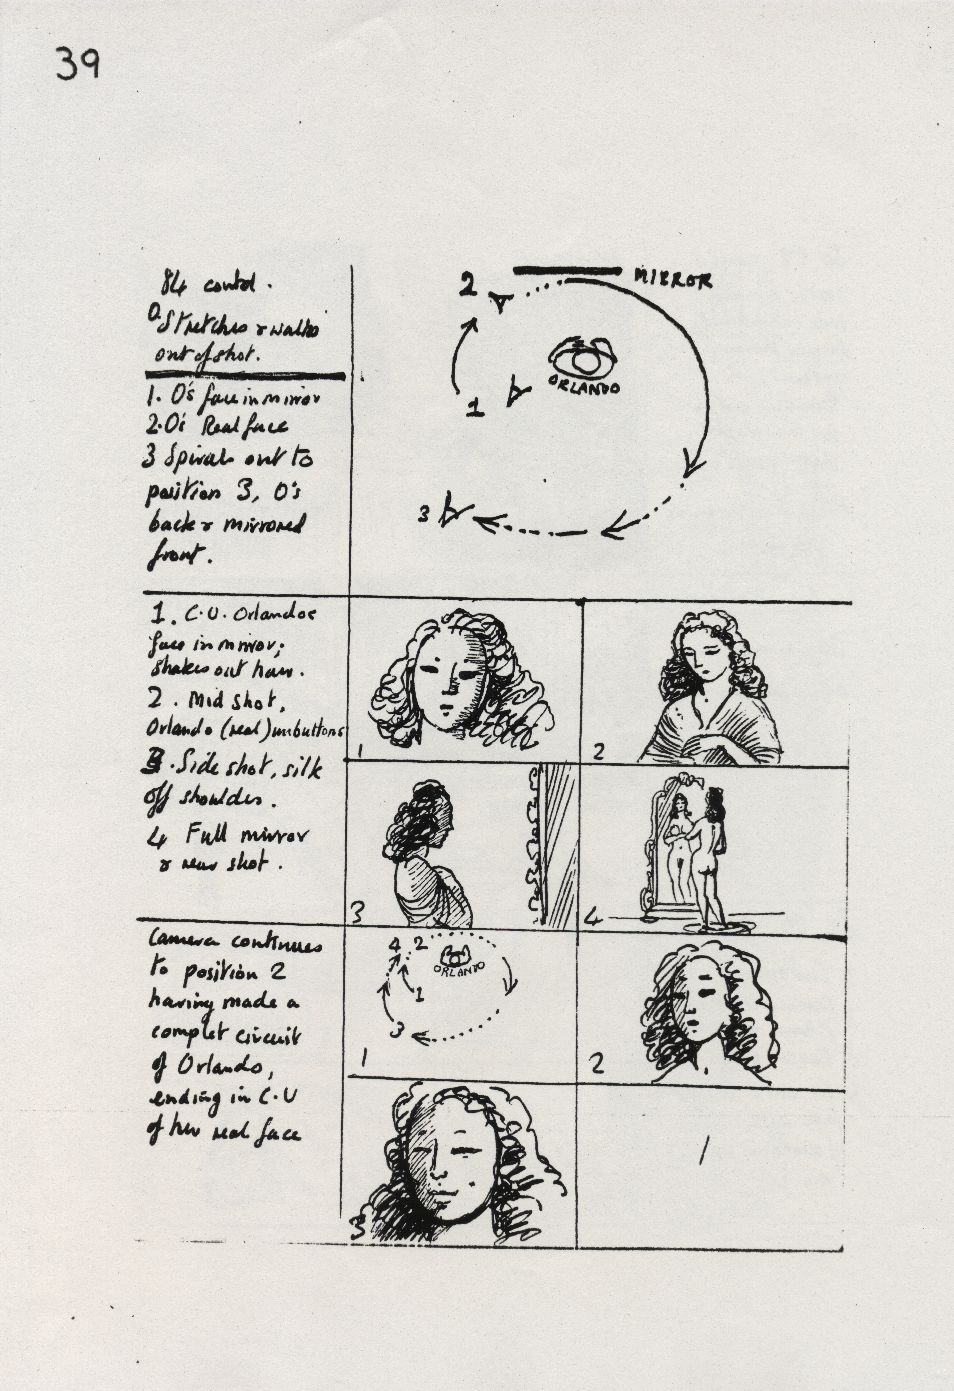 39
84 contd.
O. Stretches & walks
out of shot.
1. O's face in mirror
2. O's Real face
3 Spirals out to
position 3, O's
back & mirrored
front.
2
MIRROR
ORLANDO
1
3
1. C.U. Orlandos
face in mirror;
shakes out hair.
2. Mid shot,
Orlando (real) unbuttons
3. Side shot, silk
off shoulder.
4 Full mirror
& rear shot.
1
2
3
4
Camera continues
to position 2
having made a
complet circuit
of Orlando,
ending in C.U
of her real face
4 2
ORLANDO
1
3
1
2
3